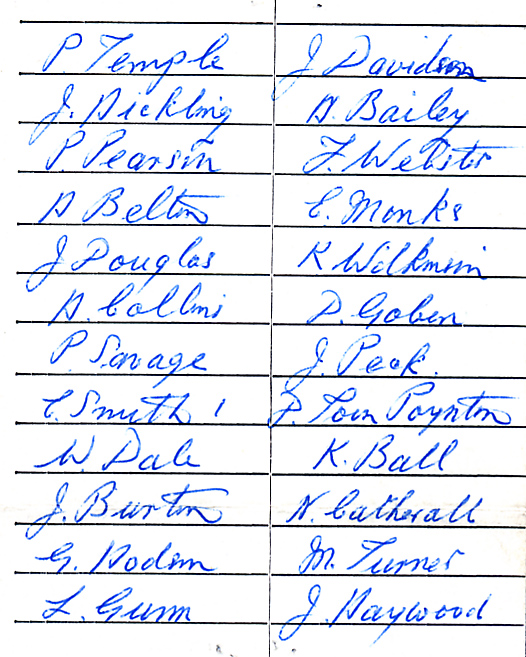 P. Temple
J. Hickling
P. Pearson
A Belton
J Douglas
A. Collins
P. Savage
C. Smith 1
W. Dale
J. Burton
G. Hodson
L. Gunn
J Davidson
A. Bailey
F. Webster
C. Monks
K Wilkinson
D. Goben
J. Peek.
Poynton
K. Ball
N. Catherall
M. Turner
J. Haywood